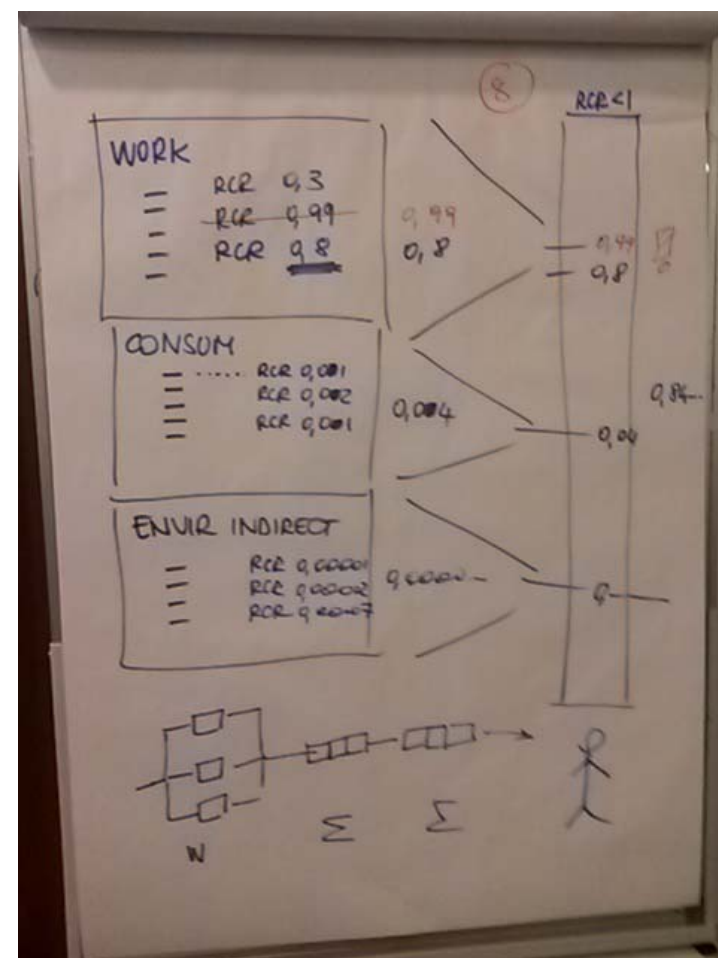 8
RCR<1
WORK
RCR 0,3
RCR 0,99
RCR 0,8
0,99
0,8
0,99
0,8
CONSUM
RCR 0,001
RCR 0,002
RCR 0,001
0,004
0,04
0,84...
ENVIR INDIRECT
RCR 0,00001
RCR 0,00002
0,0000...
0,
W
Σ
Σ